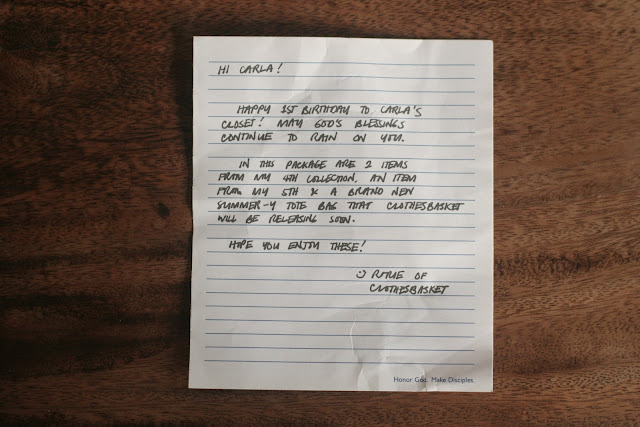 HI CARLA!
HAPPY 1ST BIRTHDAY TO CARLA'S
CLOSET! MAY GOD'S BLESSINGS
CONTINUE TO RAIN ON YOU.
IN THIS PACKAGE ARE 2 ITEMS
FROM MY 4TH COLLECTION, AN ITEM
FROM MY 5TH & A BRAND NEW
SUMMER-Y TOTE BAG THAT CLOTHESBASKET
WILL BE RELEASING SOON.
HOPE YOU ENJOY THESE!
OF
CLOTHESBASKET
Honor God. Make Disciples.